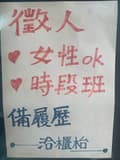 徵人
♥女性ok
♥時段班
備履歷
洽櫃枱